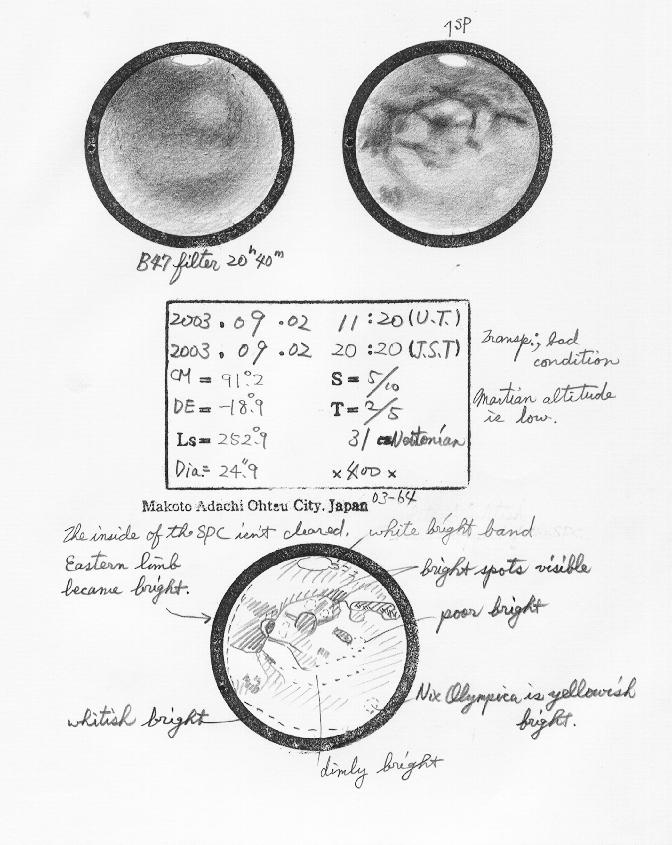 ↑SP
B47 filter 20ʰ40ᵐ
2003.09.02 11:20 (U.T.)
2003.09.02 20:20 (J.S.T)
CM = 91°.2 S = 5/10
DE = -18°.9 T = 2/5
Ls = 252°.9 31 cm Newtonian
Dia.= 24".9 ×400 ×
Transp.; bad
condition
Martian altitude
is low.
Makoto Adachi Ohtsu City. Japan 03-64
The inside of the SPC isn't cleared.
white bright band
Eastern limb
became bright.
bright spots visible
poor bright
Nix Olympica is yellowish
bright.
whitish bright
dimly bright